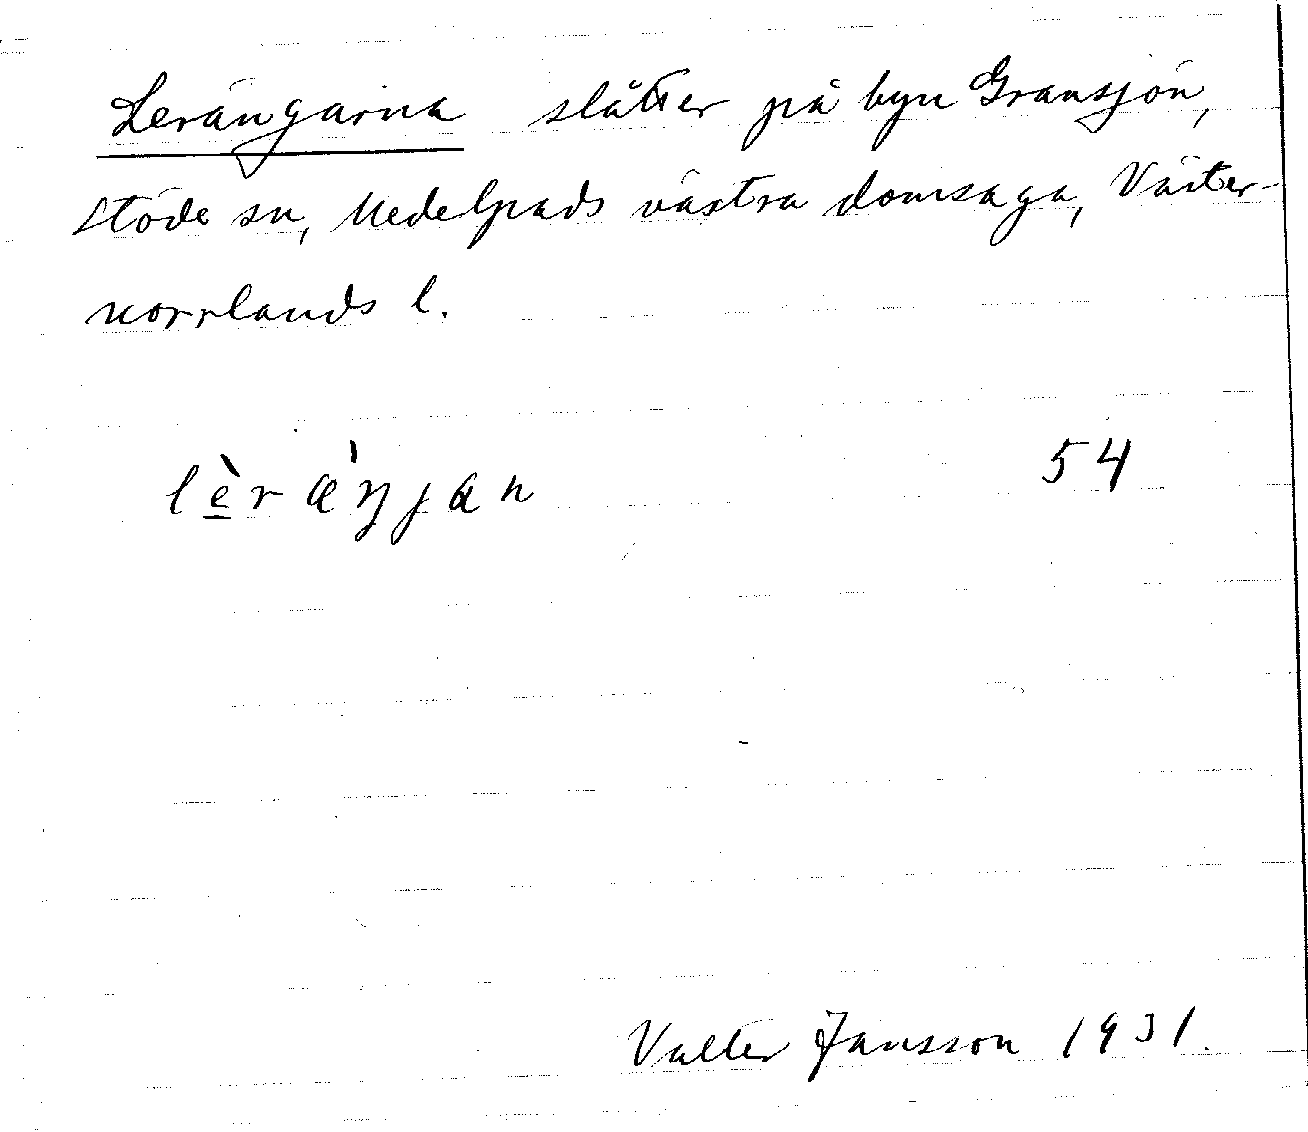 Lerängarna slåtter på byn Gransjön,
Stöde sn, Medelpads västra domsaga, Väster-
norrlands l.
lè̠ræ̀ŋjan 54
Valter Jansson 1931.